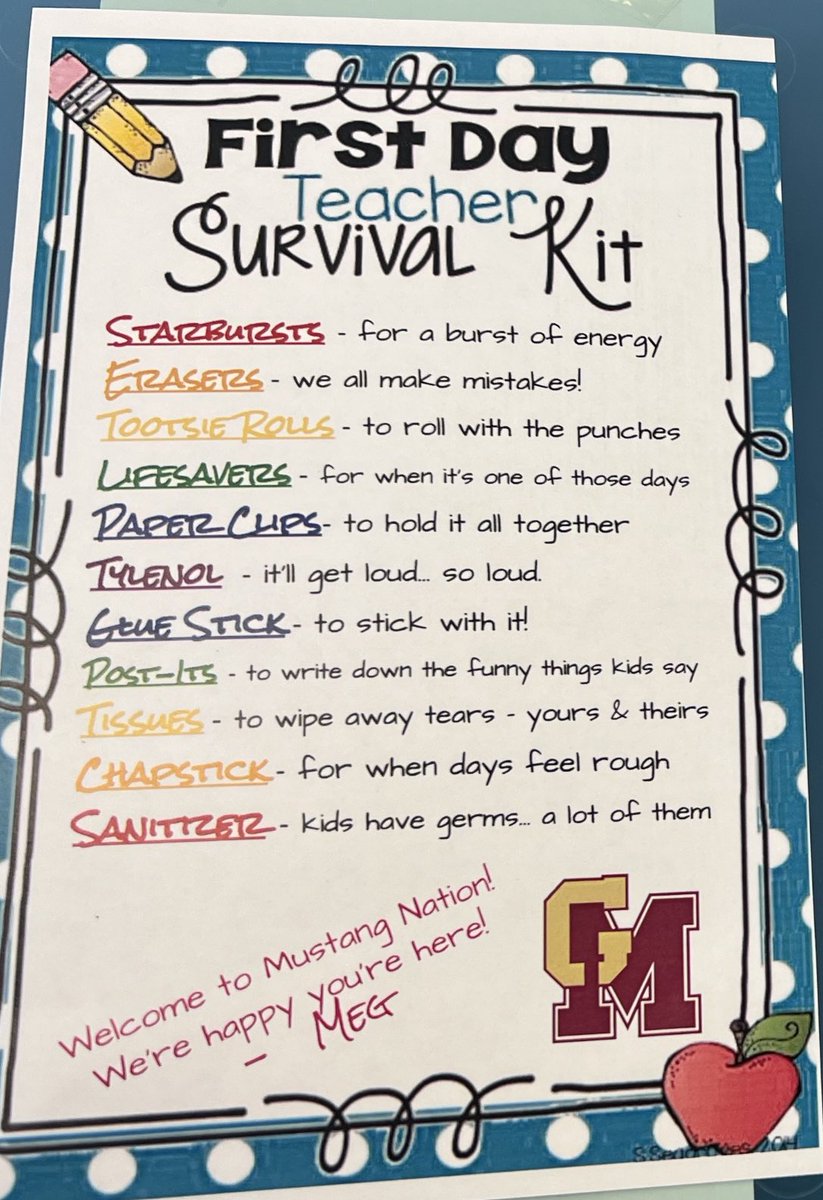 First Day
Teacher
Survival Kit
STARBURSTS - for a burst of energy
ERASERS - we all make mistakes!
TOOTSIE ROLLS - to roll with the punches
LIFESAVERS - for when it's one of those days
PAPER CLIPS - to hold it all together
TYLENOL - it'll get loud... so loud.
GLUE STICK - to stick with it!
POST-ITS - to write down the funny things kids say
TISSUES - to wipe away tears - yours & theirs
CHAPSTICK - for when days feel rough
SANITIZER - kids have germs... a lot of them
Welcome to Mustang Nation!
We're happy you're here!
- MEG
GM
2014